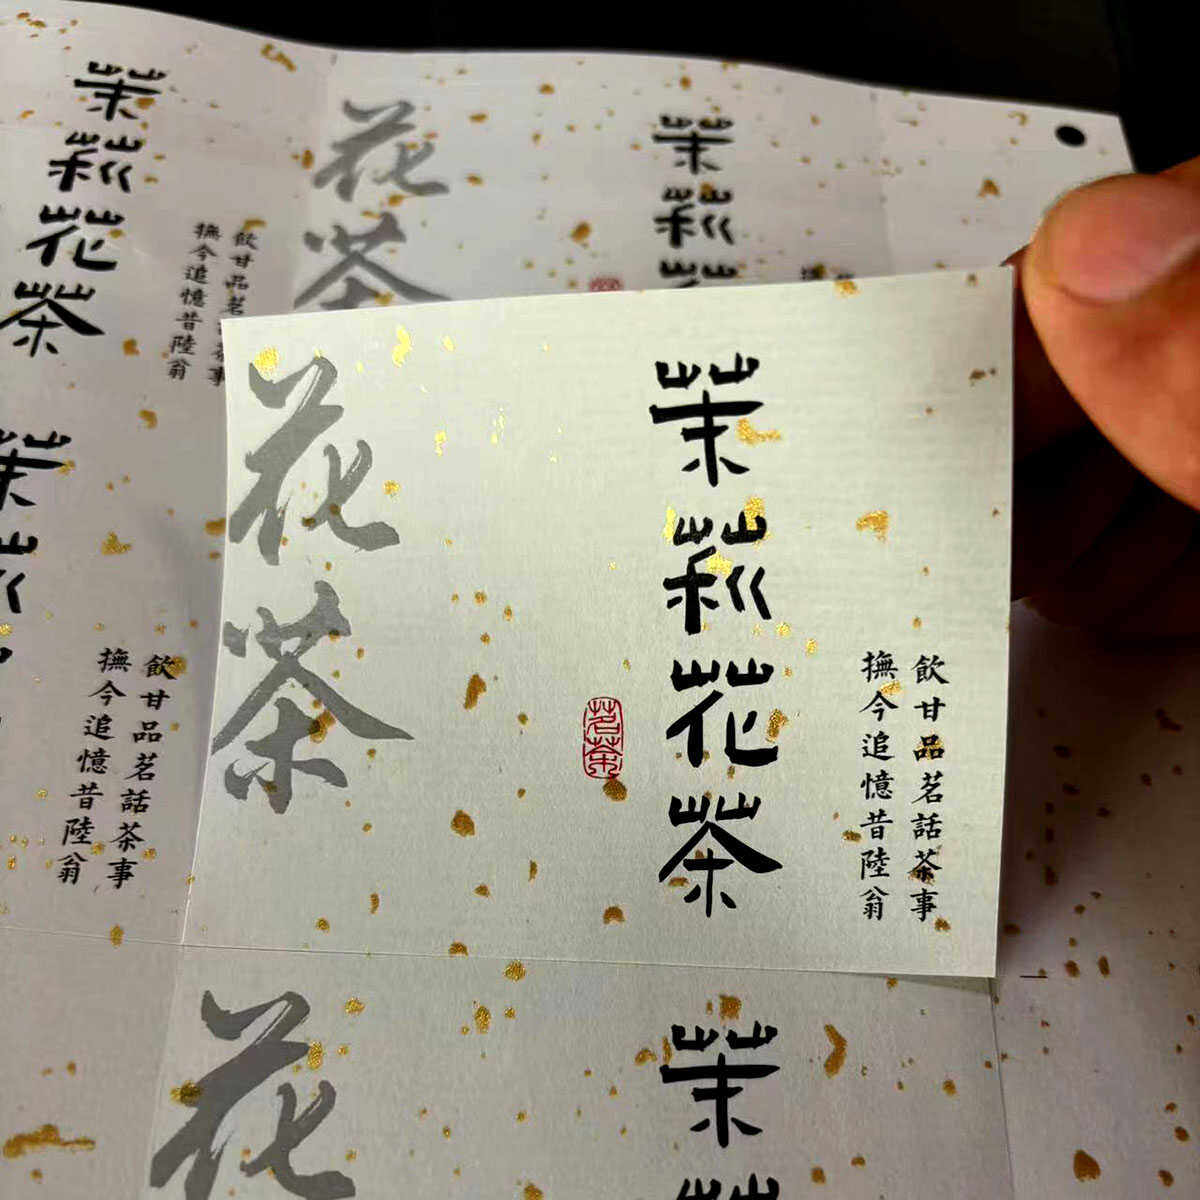 飲甘品茗話茶事
撫今追憶昔陸翁
茉莉花茶
茗茶
花茶
茉莉花
花茶
飲甘品茗話茶事
撫今追憶昔陸翁
茉莉花茶
飲甘品茗話茶事
撫今追憶昔陸翁
茉
花